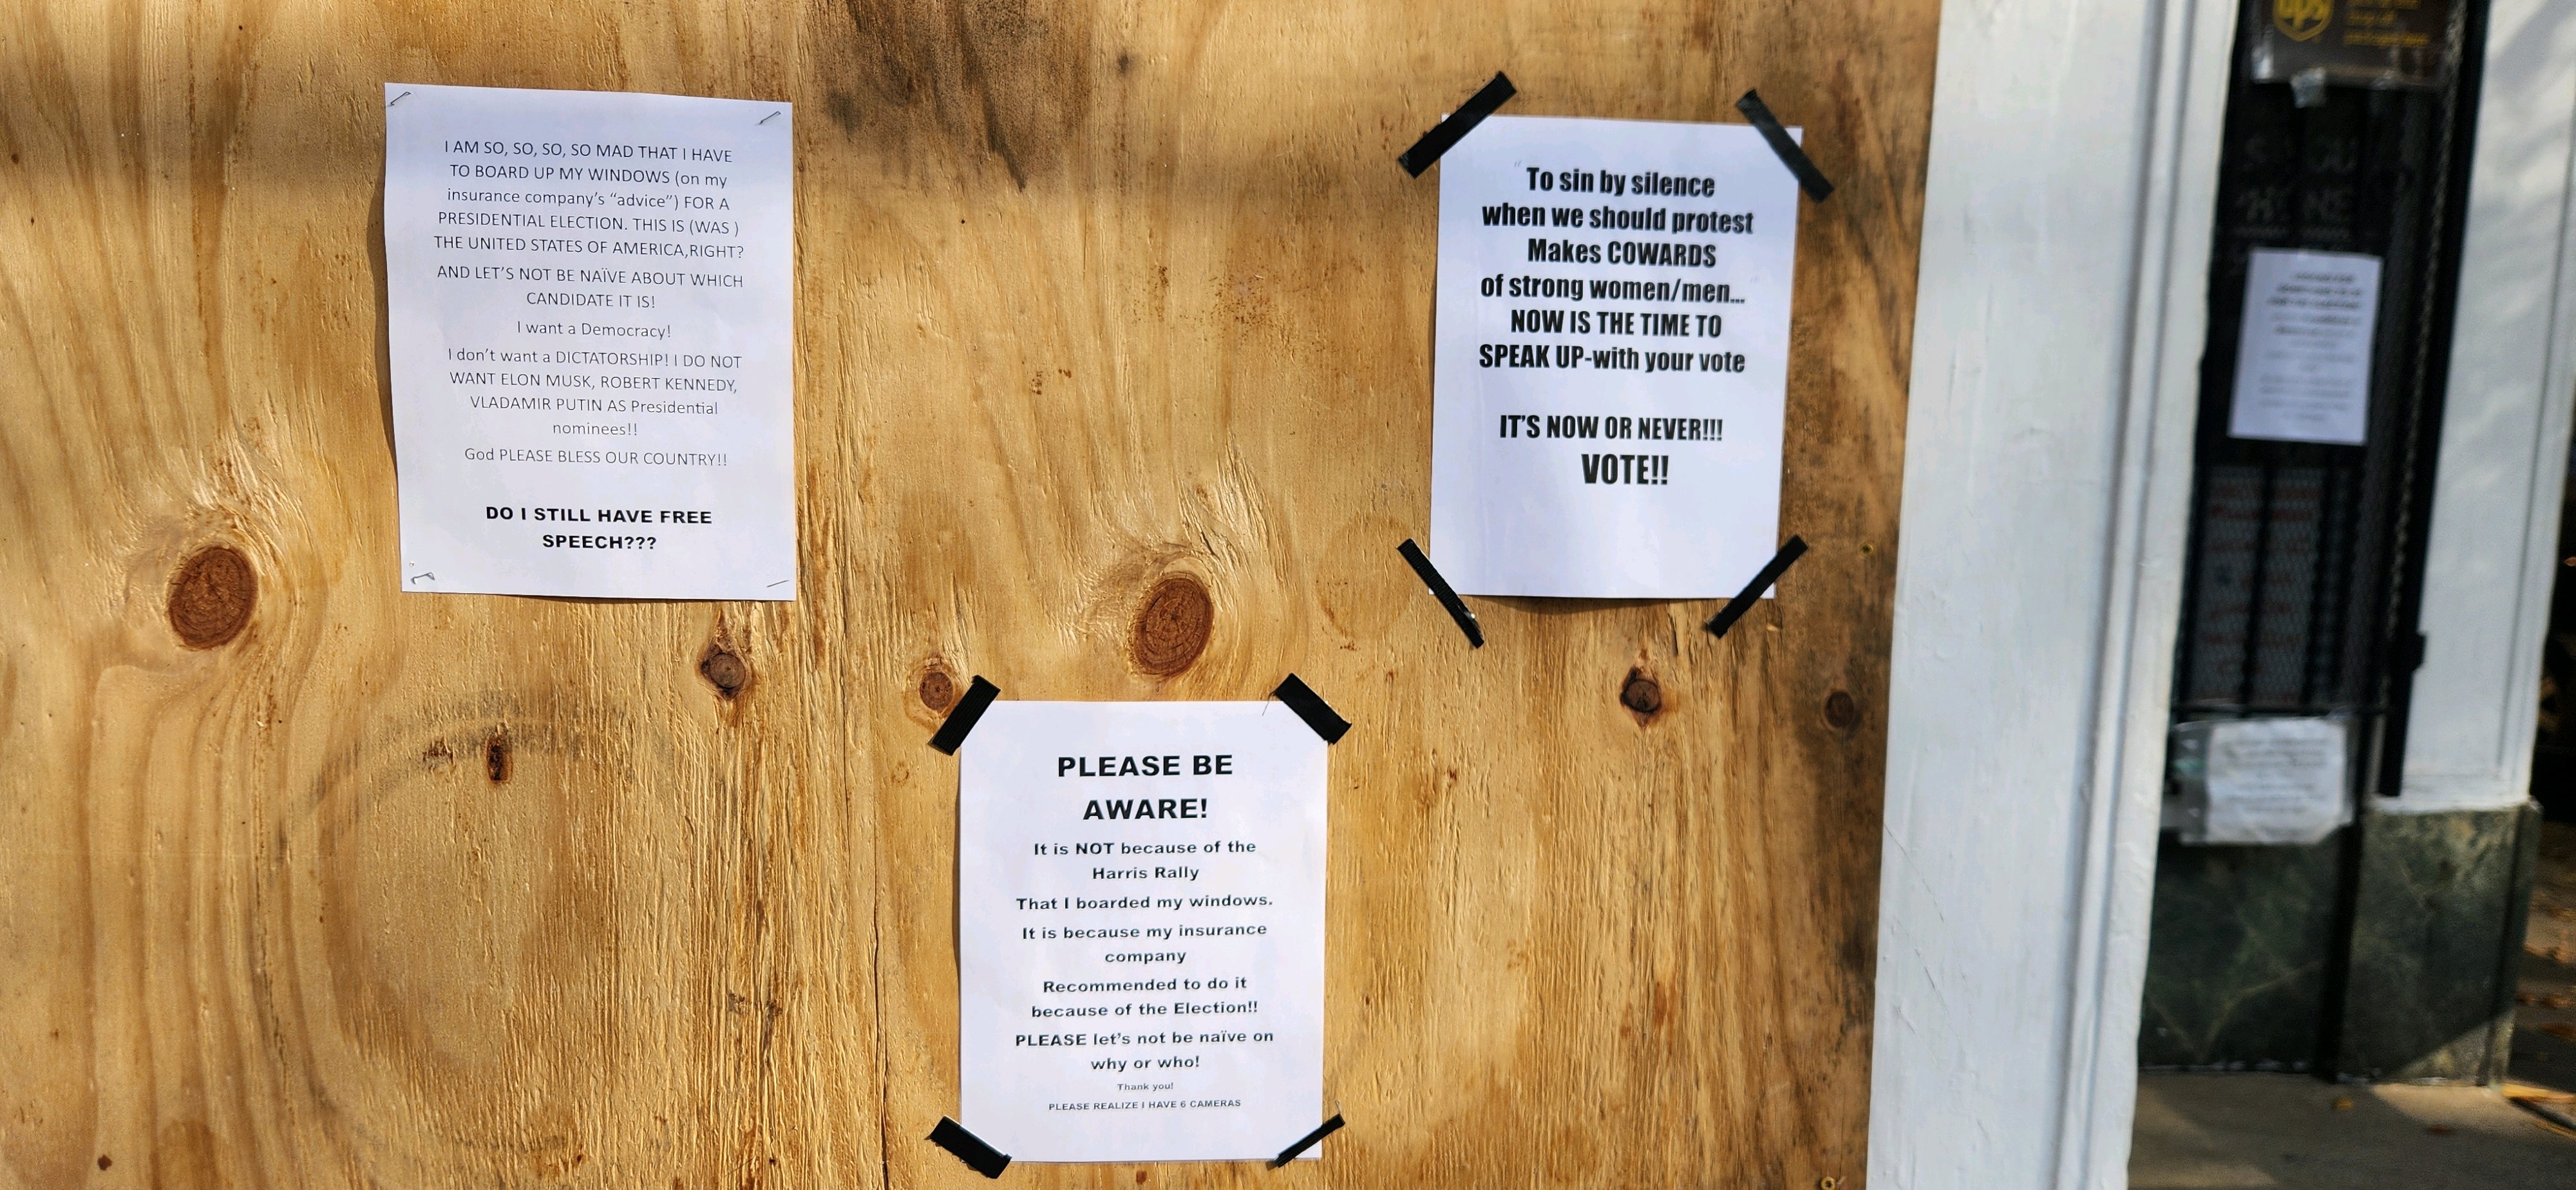 I AM SO, SO, SO, SO MAD THAT I HAVE
TO BOARD UP MY WINDOWS (on my
insurance company's “advice”) FOR A
PRESIDENTIAL ELECTION. THIS IS (WAS )
THE UNITED STATES OF AMERICA,RIGHT?
AND LET'S NOT BE NAÏVE ABOUT WHICH
CANDIDATE IT IS!
I want a Democracy!
I don't want a DICTATORSHIP! I DO NOT
WANT ELON MUSK, ROBERT KENNEDY,
VLADAMIR PUTIN AS Presidential
nominees!!
God PLEASE BLESS OUR COUNTRY!!
DO I STILL HAVE FREE
SPEECH???
To sin by silence
when we should protest
Makes COWARDS
of strong women/men...
NOW IS THE TIME TO
SPEAK UP-with your vote
IT'S NOW OR NEVER!!!
VOTE!!
PLEASE BE
AWARE!
It is NOT because of the
Harris Rally
That I boarded my windows.
It is because my insurance
company
Recommended to do it
because of the Election!!
PLEASE let's not be naïve on
why or who!
Thank you!
PLEASE REALIZE I HAVE 6 CAMERAS
ups